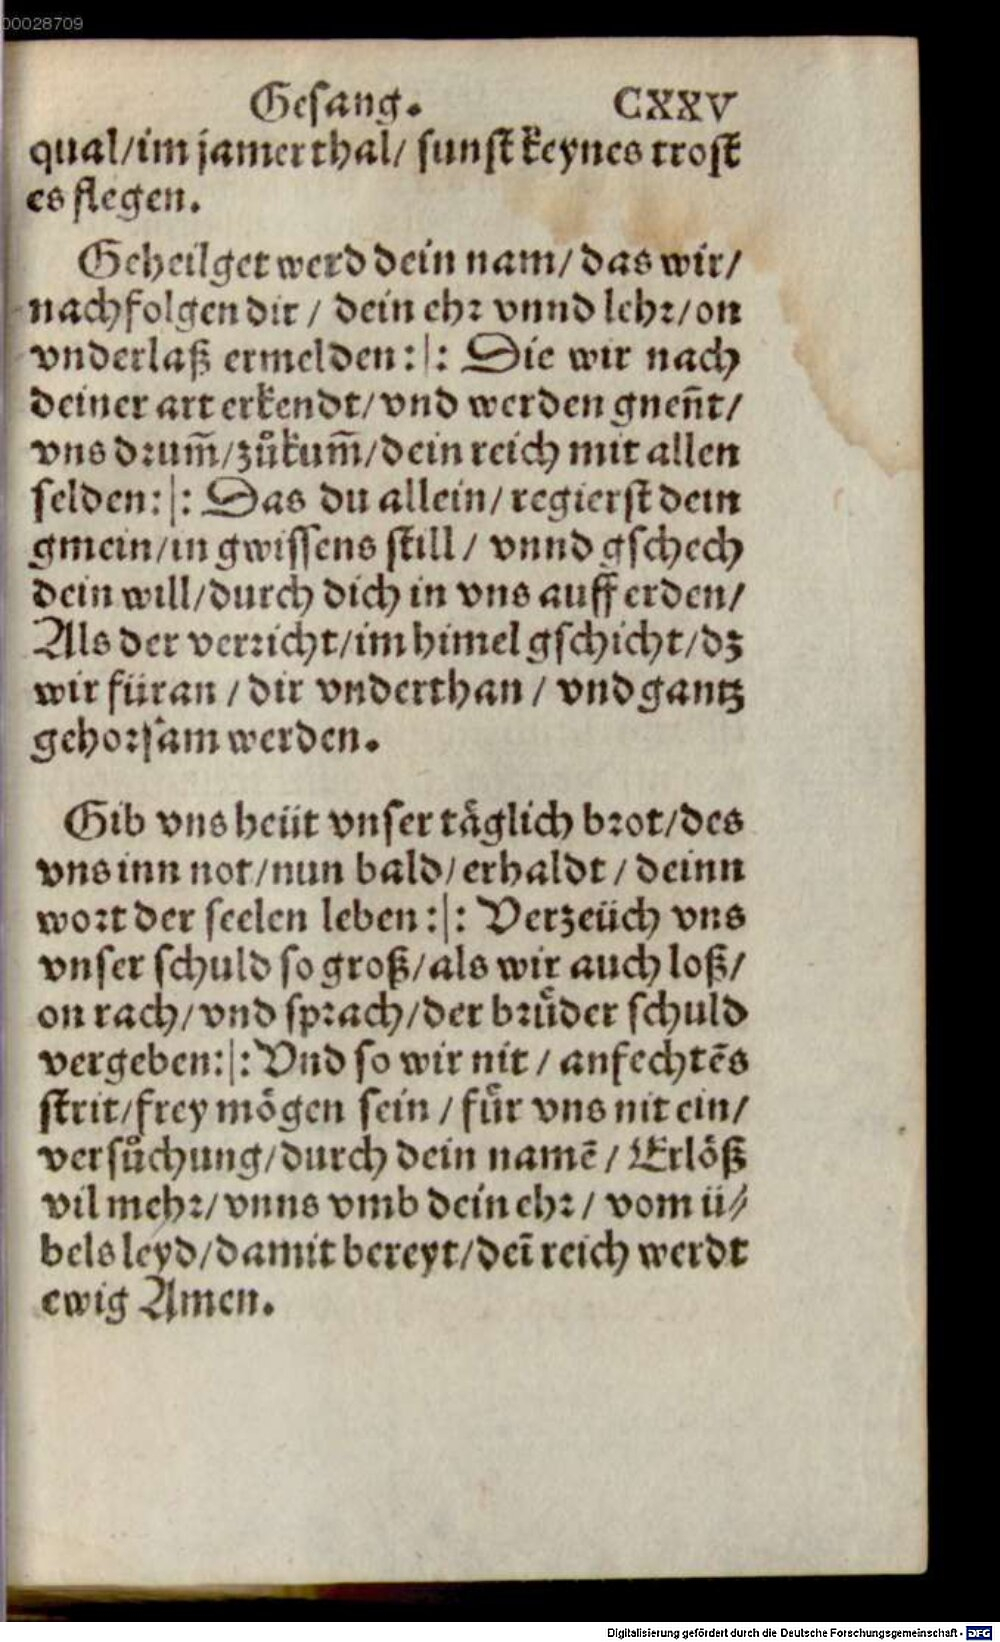 00028709
Gesang. CXXV
qual/im jamerthal/ sunst keynes trost
es flegen.
Geheilget werd dein nam/ das wir/
nachfolgen dir / dein ehr vnnd lehr/on
vnderlaß ermelden:|: Die wir nach
deiner art erkendt/vnd werden gneñt/
vns drum̃/zůkum̃/dein reich mit allen
selden:|: Das du allein/ regierst dein
gmein/in gwissens still / vnnd gschech
dein will/durch dich in vns auff erden/
Als der verricht/im himel gschicht/dz
wir füran / dir vnderthan / vnd gantz
gehorsam werden.
Gib vns heüt vnser täglich brot/des
vns inn not/nun bald/erhaldt / deinn
wort der seelen leben:|: Verzeüch vns
vnser schuld so groß/als wir auch loß/
on rach/vnd sprach/der brüder schuld
vergeben:|: Vnd so wir nit / anfechtẽs
strit/frey mögen sein / für vns nit ein/
versůchung/durch dein namẽ / Erlöß
vil mehr/vnns vmb dein ehr / vom ü⸗
bels leyd/damit bereyt/deĩ reich werdt
ewig Amen.
Digitalisierung gefördert durch die Deutsche Forschungsgemeinschaft - DFG